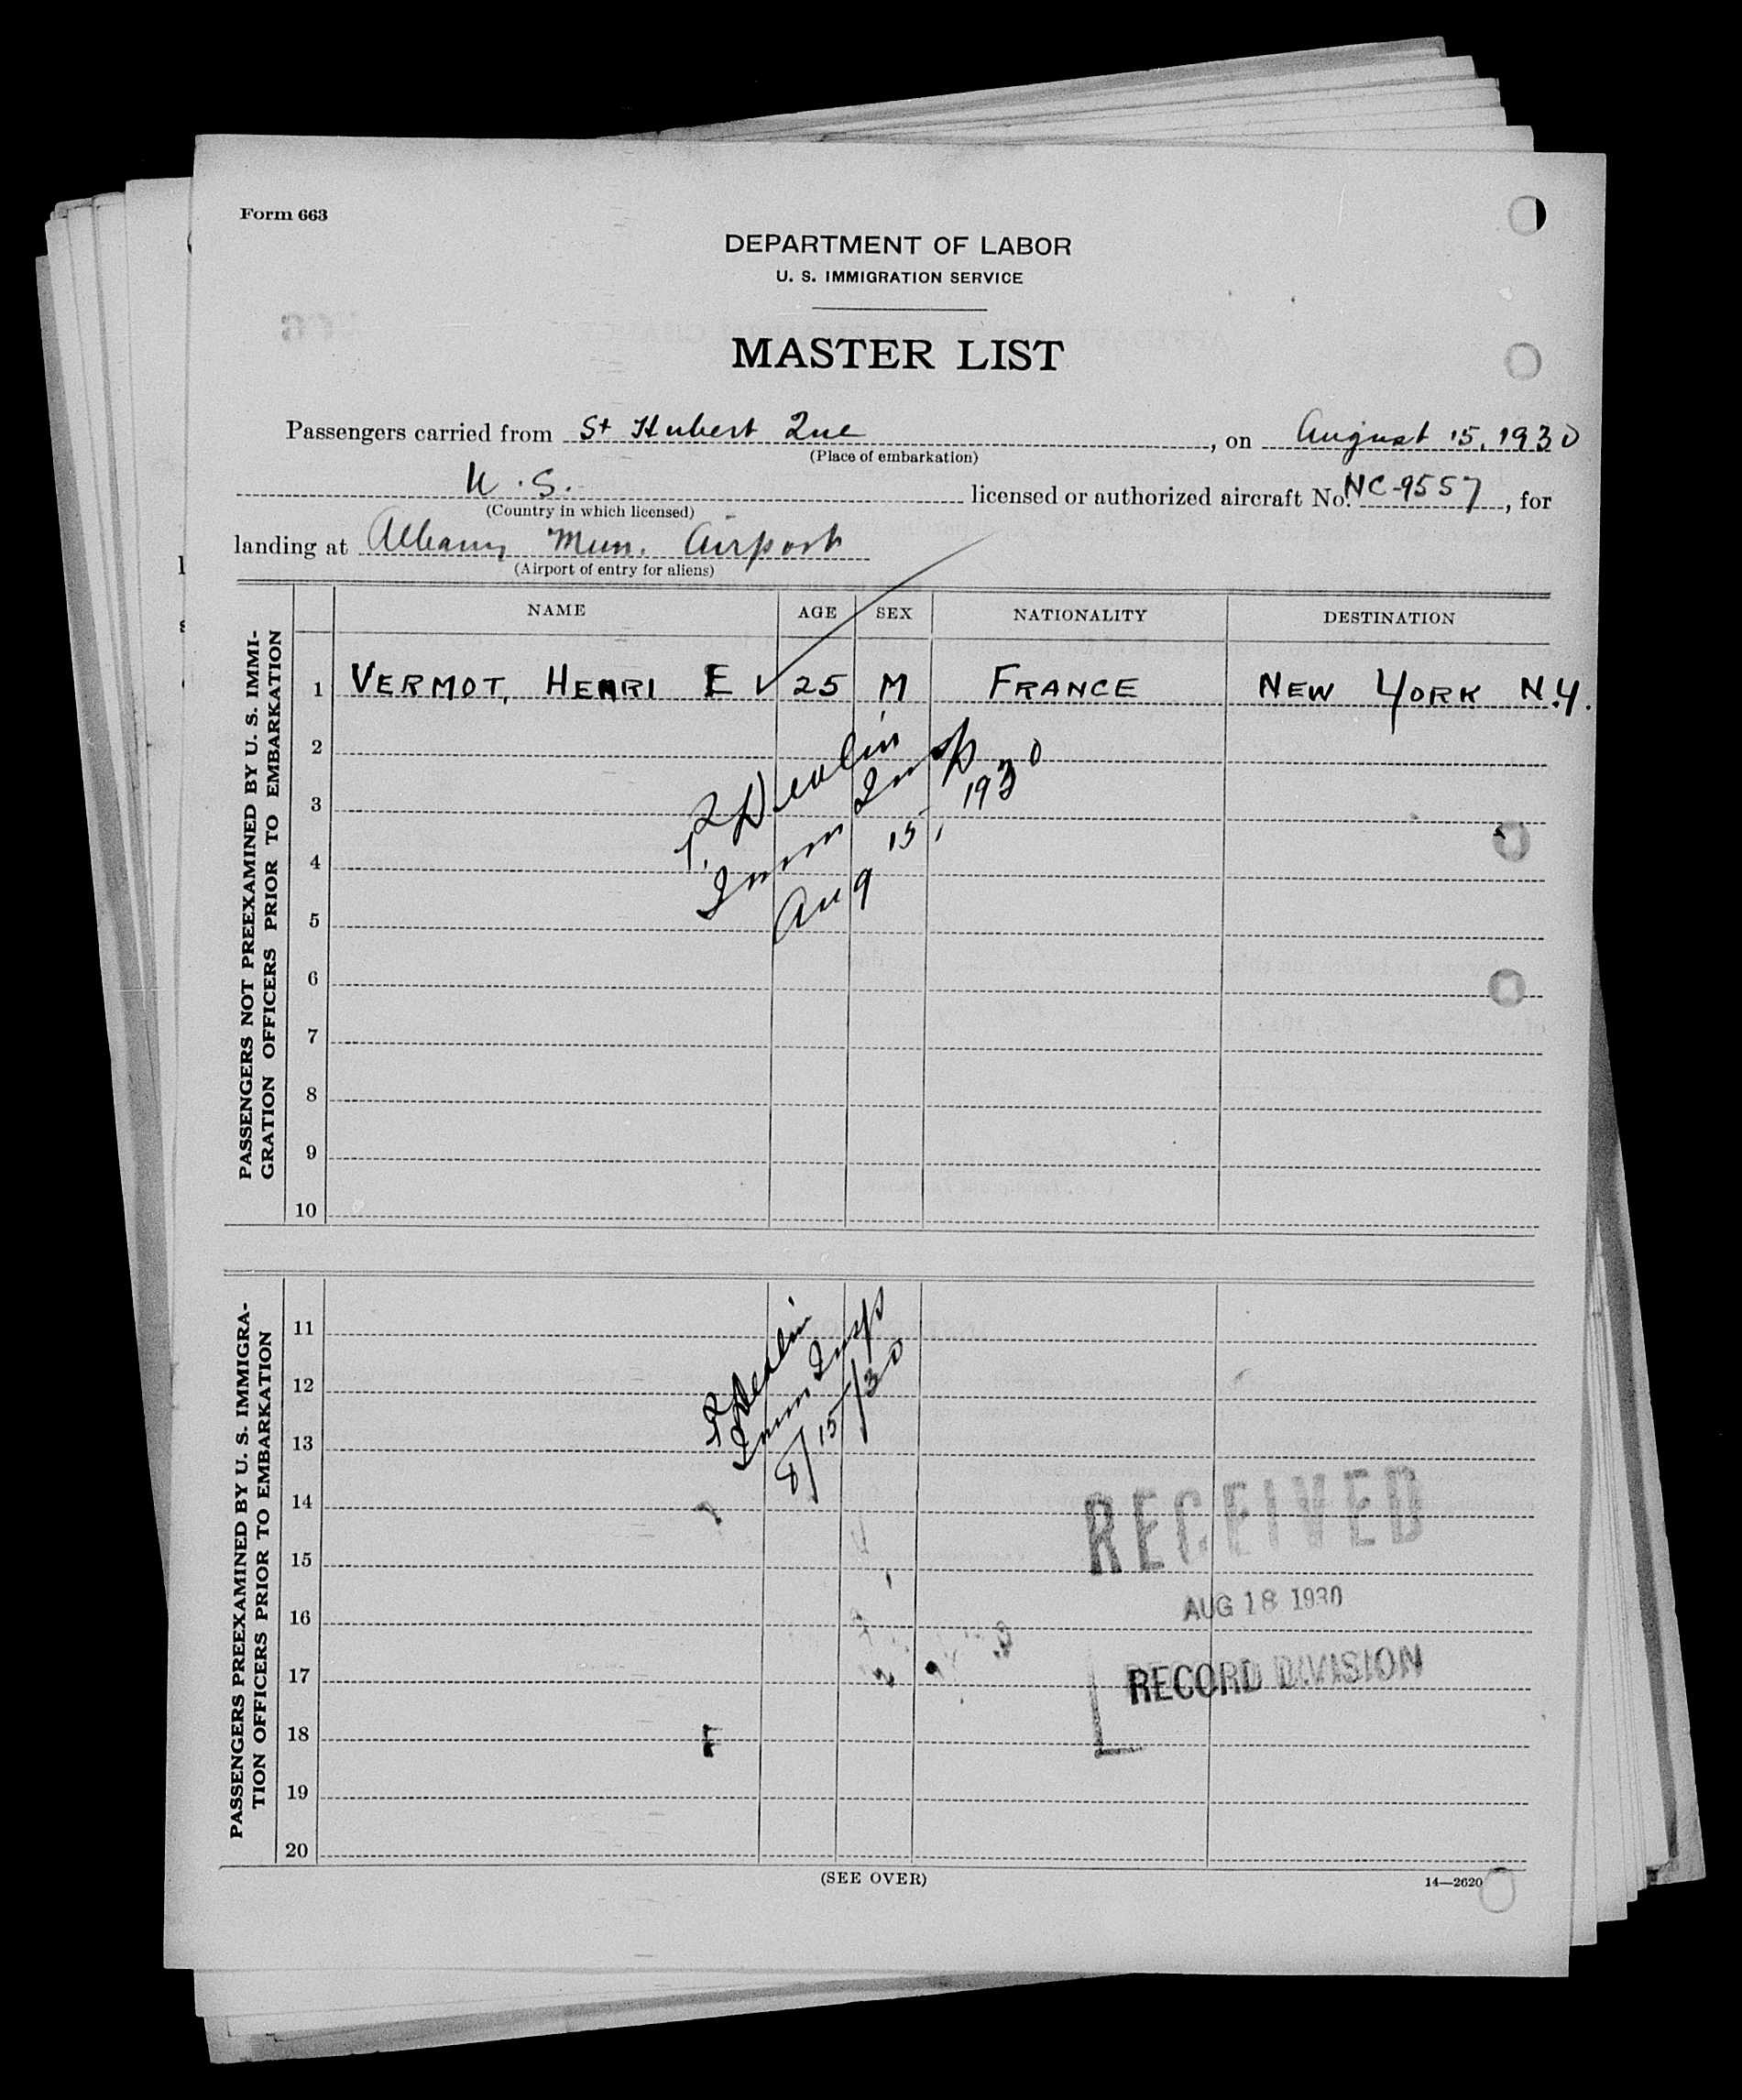 Form 663
DEPARTMENT OF LABOR
U. S. IMMIGRATION SERVICE
MASTER LIST
Passengers carried from St Hubert Que, on August 15, 1930
(Place of embarkation)
U.S. licensed or authorized aircraft No. NC-9557, for
(Country in which licensed)
landing at Albany Mun. Airport
(Airport of entry for aliens)
NAME AGE SEX NATIONALITY DESTINATION
PASSENGERS NOT PREEXAMINED BY U. S. IMMI-
GRATION OFFICERS PRIOR TO EMBARKATION
1 VERMOT, HENRI E ✓ 25 M FRANCE NEW YORK N.Y.
2
3
4
5
6
7
8
9
10
Devlin
Imm Insp
Aug 15, 1930
PASSENGERS PREEXAMINED BY U. S. IMMIGRA-
TION OFFICERS PRIOR TO EMBARKATION
11
12
13
14
15
16
17
18
19
20
Devlin
Imm Insp
8/15/30
RECEIVED
AUG 18 1930
RECORD DIVISION
(SEE OVER)
14—2620